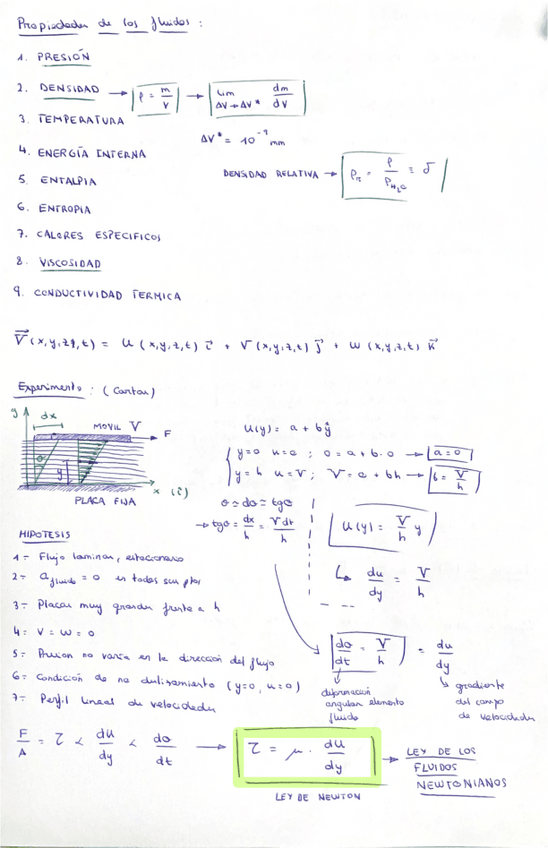 Propiedades de los fluidos :
1. PRESIÓN
2. DENSIDAD → ρ = m/V → lim ΔV→ΔV* dm/dV
3. TEMPERATURA
ΔV* = 10⁻⁹ mm
4. ENERGÍA INTERNA
DENSIDAD RELATIVA → ρr = ρ/ρH₂O = δ
5. ENTALPIA
6. ENTROPIA
7. CALORES ESPECIFICOS
8. VISCOSIDAD
9. CONDUCTIVIDAD TERMICA
V⃗ (x,y,z,t) = u (x,y,z,t) i⃗ + V (x,y,z,t) j⃗ + w (x,y,z,t) k⃗
Experimento : (
y dx
MOVIL V → F
y
x (i⃗)
PLACA FIJA
u(y) = a + by
y=0 u=0 ; 0 = a + b·0 → a = 0
y=h u=V ; V = a + bh → b = V/h
θ ≃ dθ ≃ tgθ
→ tgθ = dx/h = V dt/h
u(y) = V/h y
↳ du/dy = V/h
HIPOTESIS
1- Flujo laminar, estacionario
2- a fluido = 0 en todos sus ptos
3- Placas muy grandes frente a h
4- V = W = 0
5- Presion no varia en la dirección del flujo
6- Condición de no deslizamiento (y=0, u=0)
7- Perfil lineal de velocidades
dθ/dt = V/h = du/dy
deformación angular elemento fluido
gradiente del campo de velocidades
F/A = τ ∝ du/dy ∝ dθ/dt → τ = μ · du/dy → LEY DE LOS FLUIDOS NEWTONIANOS
LEY DE NEWTON